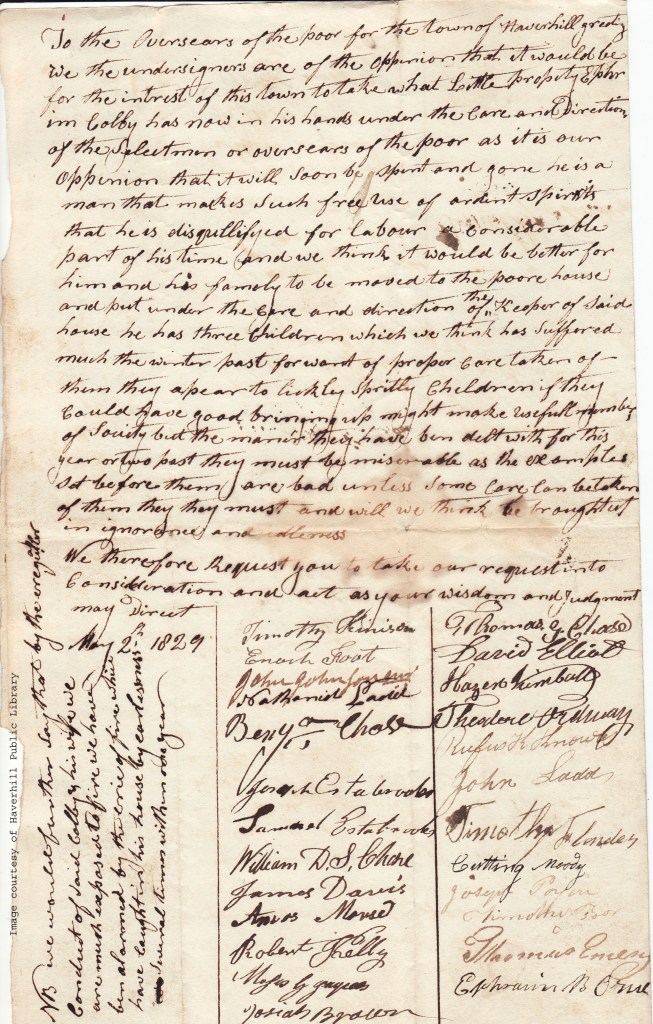 To the Oversears of the poor for the town of Haverhill greeting
We the undersigners are of the Oppinion that it would be
for the intrest of this town to take what Little propety Ephr
im Colby has now in his hands under the Care and Direction
of the Selectmen or oversears of the poor as it is our
Oppinion that it will soon be spent and gone he is a
man that makes Such free use of ardent Spirits
that he is disqullifyed for labour a considerable
part of his time and we think it would be better for
him and his famely to be moved to the poore house
and put under the Care and direction of the Keeper of Said
house he has three Children which we think has Suffered
much the winter past for want of proper Care taken of
them they apear to lickly Spritly Children if they
Could have good bringing up might make usefull members
of Society but the maner they have ben delt with for this
year or two past they must be miserable as the examples
Set before them are bad unless Some Care Can be taken
of them they they must and will we think be brought up
in ignorance and idleness
We therefore Request you to take our request into
Consideration and act as your wisdom and Judgment
may Direct
May 2nd 1829
Timothy Kinison
Enoch Foot
John Johnson
Nathaniel Ladd
Benj Chase
Joseph Estabrooks
Samuel Estabrooks
William D. S. Chase
James Davis
Amos Morsed
Robert Kelly
Moses G
Josiah Brown
Thomas G Chase
David Elliot
Hazen Kimball
Theodore Ordway
Rufus K Knowles
John Ladd
Timothy Flanders
Cutting Moody
Joseph
Timothy
Thomas Emery
Ephraim B Orne
NB we would further say that by the eregular
Conduct of Said Colby & his wife we
are much exposed to fire we have
ben alarmed by the crie of fire which
have Caught in his house by carlessness
Several times within one year
Image courtesy of Haverhill Public Library